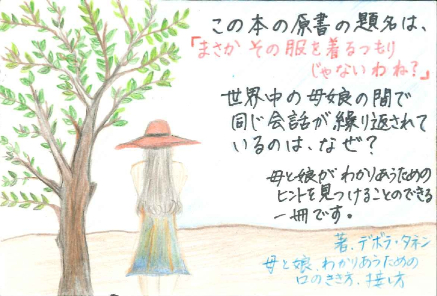 この本の原書の題名は、
「まさか その服を着るつもり
じゃないわね?」
世界中の母娘の間で
同じ会話が繰り返されて
いるのは、なぜ?
母と娘がわかりあうための
ヒントを見つけることのできる
一冊です。
著.デボラ・タネン
母と娘.わかりあうための
口のきき方.接し方